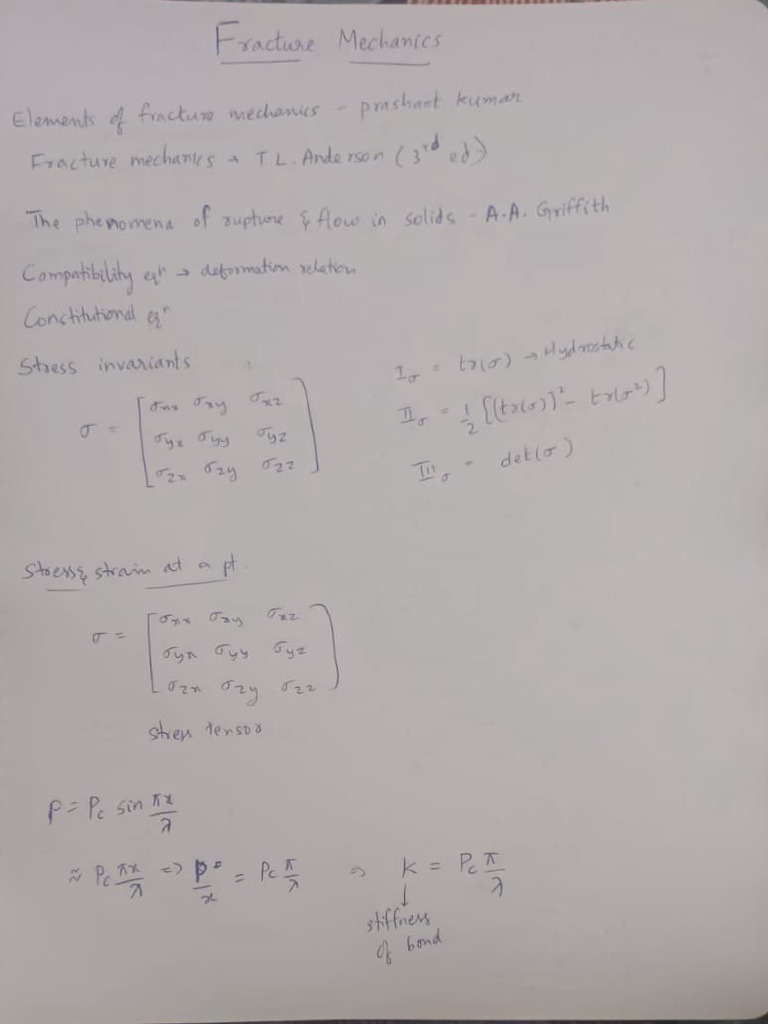 Fracture Mechanics
Elements of fracture mechanics - prashant kumar
Fracture mechanics → T L. Anderson (3rd ed)
The phenomena of rupture & flow in solids - A.A. Griffith
Compatibility eqn → deformation relation
Constitutional eqn
Stress invariants
I_σ = tr(σ) → Hydrostatic
σ = [σxx σxy σxz
σyx σyy σyz
σzx σzy σzz]
II_σ = 1/2 [(tr(σ))² - tr(σ²)]
III_σ = det(σ)
Stress & strain at a pt.
σ = [σxx σxy σxz
σyx σyy σyz
σzx σzy σzz]
stress tensor
P = Pc sin πx/λ
≈ Pc πx/λ => P/x = Pc π/λ => k = Pc π/λ
↓
stiffness
of bond